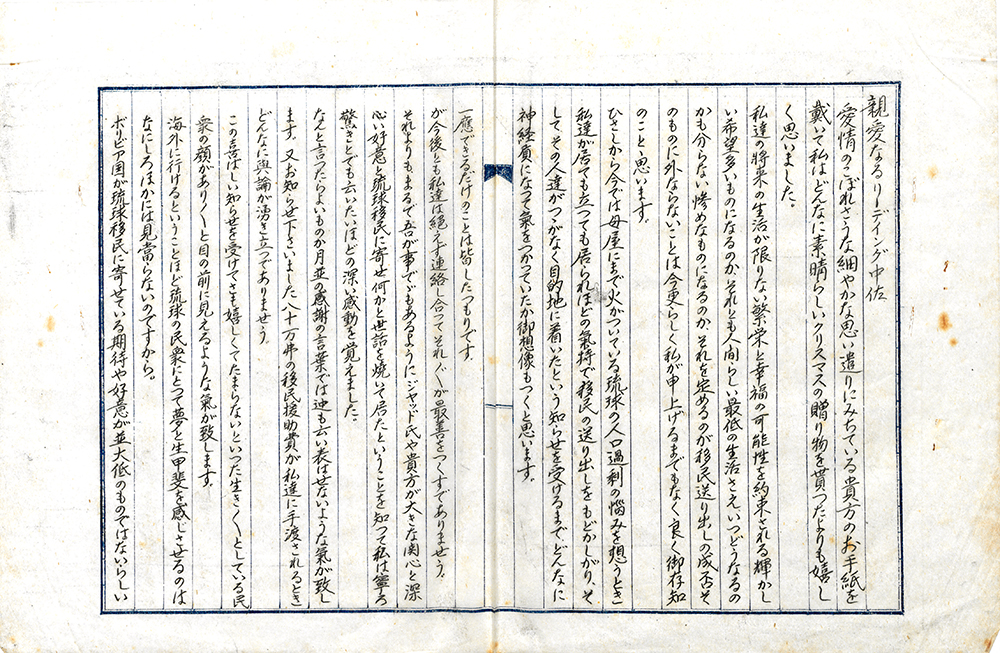 親愛なるリーデイング中佐
愛情のこぼれさうな細やかな思い遣りにみちている貴方のお手紙を
戴いて私はどんなに素晴らしいクリスマスの贈り物を貰つたよりも嬉し
く思いました。
私達の将来の生活が限りない繁栄と幸福の可能性を約束される輝かし
い希望多いものになるのか、それとも人間らしい最低の生活さえいつどうなるの
かも分らない惨めなものになるのか、それを定めるのが移民送り出しの成否そ
のものに外ならないことは今更らしく私が申し上げるまでもなく良く御存知
のことと思います。
ひさしから今では母屋にまで火がついている琉球の人口過剰の悩みを想うとき
私達が居ても立つても居られぬほどの氣持で移民の送り出しをもどかしがり、そ
してその人達がつつがなく目的地に着いたという知らせを受けるまで、どんなに
神経質になつて氣をつかつていたか御想像もつくと思います。
一應できるだけのことは皆したつもりです
が今後とも私達は絶えず連絡し合つてそれ〲が最善をつくすでありませう。
それよりもまるで吾が事ででもあるようにジヤツド氏や貴方が大きな関心と深
い好意を琉球移民に寄せ何かと世話を焼いて居たということを知つて私は寧ろ
驚きとでも云いたいほどの深い感動を覚えました。
なんと言つたらよいものか月並の感謝の言葉では迚も云い表はせないような氣が致し
ます。又お知らせ下さいました八十万弗の移民援助費が私達に手渡されるとき
どんなに輿論が湧き立つでありませう。
この喜ばしい知らせを受けてさも嬉しくてたまらないといつた生き〱としている民
衆の顔があり〱と目の前に見えるような氣が致します。
海外に行けるということほど琉球の民衆にとつて夢と生甲斐を感じさせるのは
なにしろほかには見當らないのですから。
ボリビア国が琉球移民に寄せている期待や好意が並大低のものではないらしい